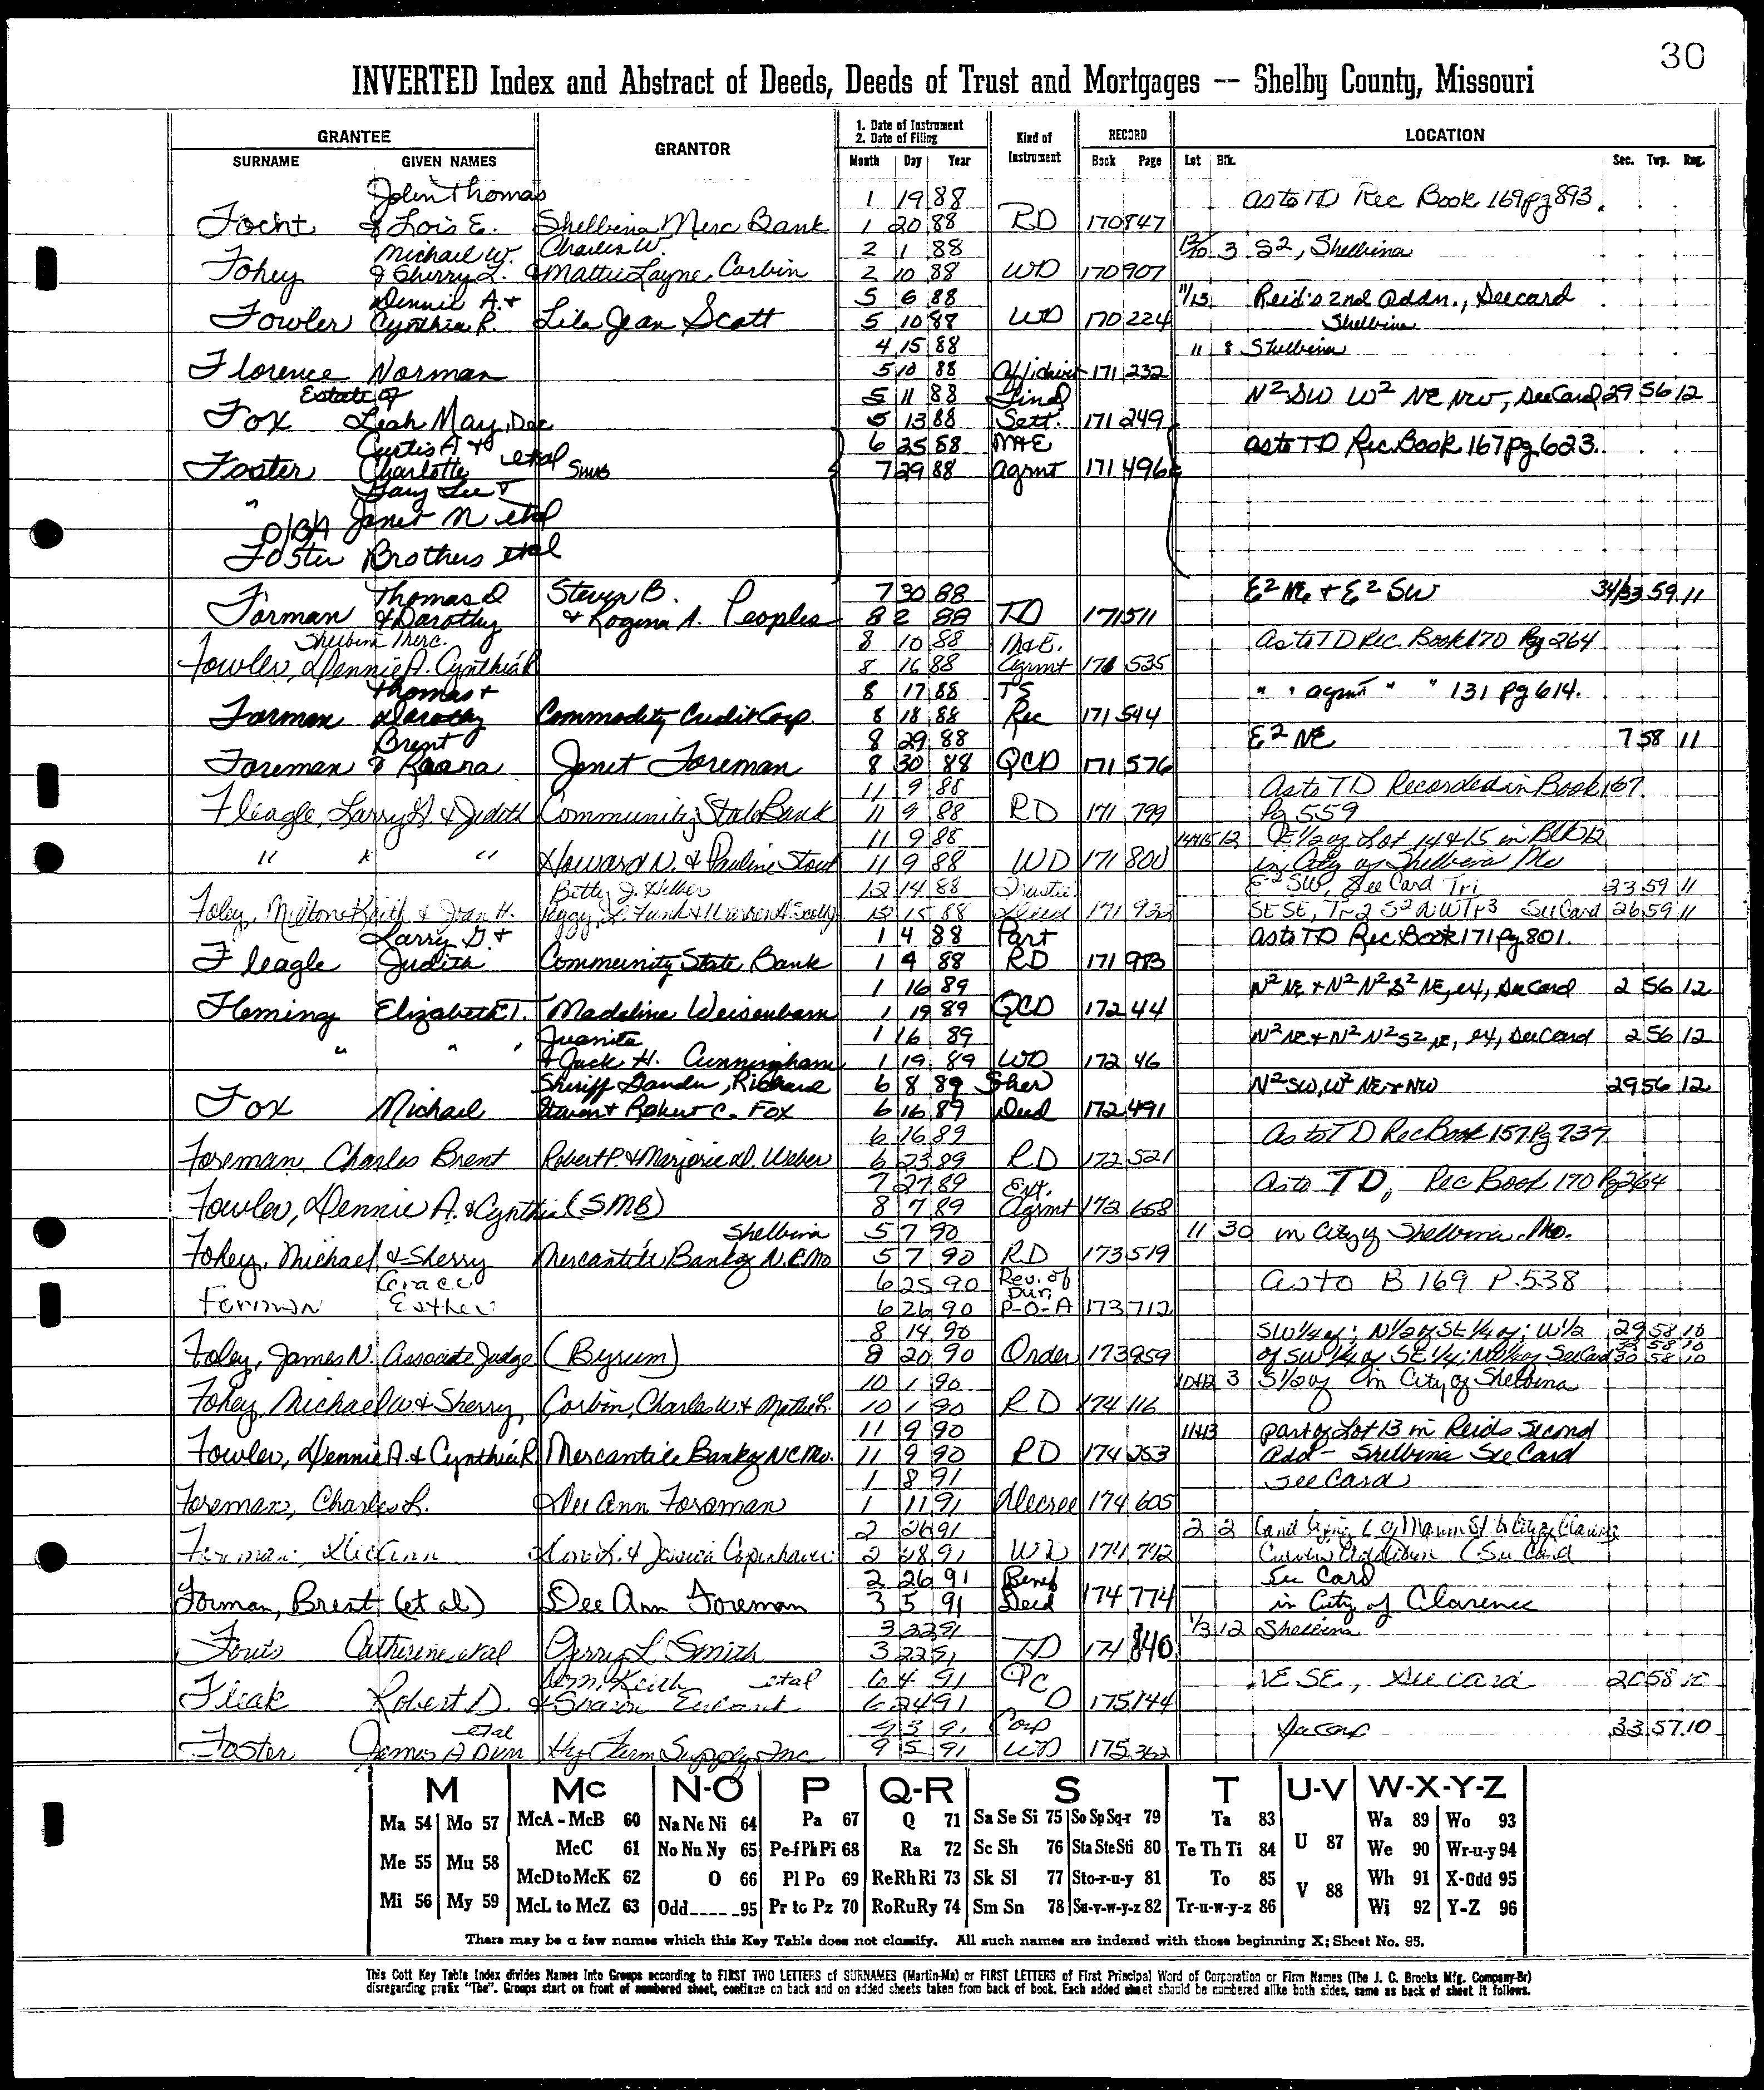 30
INVERTED Index and Abstract of Deeds, Deeds of Trust and Mortgages — Shelby County, Missouri
GRANTEE GRANTOR 1. Date of Instrument 2. Date of Filing Kind of Instrument RECORD LOCATION
SURNAME GIVEN NAMES Month Day Year Book Page Lot Blk. Sec. Twp. Rng.
John Thomas 1 19 88 as to TD Rec Book 169 pg 893
Focht & Lois E. Shelbina Merc Bank 1 20 88 RD 170 847
Michael W. Charles W. 2 1 88 3 S2, Shelbina
Fohey & Sherry L. & Mattie Layne Corbin 2 10 88 WD 170 907
Dennie A. + 5 6 88 11/13 Reid's 2nd Addn., See card
Fowler Cynthia R. Lila Jean Scott 5 10 88 WD 170 224 Shelbina
4 15 88 11 8 Shelbina
Florence Norman 5 10 88 Affidavit 171 232
Estate of 5 11 88 Final N2 SW W2 NE NW, See Card 29 56 12
Fox Leah May, Dec 5 13 88 Sett. 171 249
Curtis A + 6 25 88 M+E as to TD Rec Book 167 pg 623.
Foster Charlotte etal SMB 7 29 88 agrmt 171 496
" Gary Lee +
Janet N etal
D/B/A
Foster Brothers etal
Thomas D Steven B. 7 30 88 E2 NE + E2 SW 34/33 59 11
Forman & Dorothy + Rogena A. Peoples 8 2 88 TD 171 511
Shelbina Merc. 8 10 88 M&E. As to TD Rec. Book 170 Pg 264
Fowler, Dennie A. Cynthia R 8 16 88 Agrmt 171 535
Thomas + 8 17 88 TS " " agmt " " 131 pg 614.
Forman Dorothy Commodity Credit Corp. 8 18 88 Rec 171 544
Brent 8 29 88 E2 NE 7 58 11
Foreman & Raona Janet Foreman 8 30 88 QCD 171 576
11 9 88 As to TD Recorded in Book 167
Fleagle, Larry G & Judith Community State Bank 11 9 88 RD 171 799 Pg 559
11 9 88 14+15 12 E 1/2 of Lot 14 & 15 in Blk 12
" " " Howard N. & Pauline Stout 11 9 88 WD 171 800 in City of Shelbina Mo
Betty J. 12 14 88 Trustee E2 SW, See Card Tr1 23 59 11
Foley, Milton Keith & Joan H. 12 15 88 Deed 171 932 SE SE, Tr2 S2 NW Tr3 See Card 26 59 11
Larry G + 1 4 88 Part as to TD Rec Book 171 Pg 801.
Fleagle Judith Community State Bank 1 9 88 RD 171 983
1 16 89 N2 NE + N2 N2 S2 NE, ex, See Card 2 56 12
Fleming Elizabeth T. Madeline Weisenborn 1 19 89 QCD 172 44
Juanita 1 16 89 N2 NE + N2 N2 S2 NE, ex, See Card 2 56 12
" " " + Jack H. Cunningham 1 19 89 WD 172 46
Sheriff Richard 6 8 89 Sher N2 SW, W2 NE + NW 29 56 12
Fox Michael Steven + Robert C. Fox 6 16 89 Deed 172 491
6 16 89 As to TD Rec Book 157 Pg 737
Foreman, Charles Brent Robert P. & Marjorie D. Weber 6 23 89 RD 172 521
7 27 89 Ext. as to TD, Rec Book 170 Pg 264
Fowler, Dennie A. & Cynthia (SMB) 8 7 89 Agrmt 172 658
Shelbina 5 7 90 11 30 in City of Shelbina, Mo.
Fohey, Michael & Sherry Mercantile Bank of N.E. Mo 5 7 90 RD 173 519
Grace 6 25 90 Rev. of Dur. As to B 169 P. 538
Forman Esther 6 26 90 P-O-A 173 712
8 14 90 SW 1/4 of; N 1/2 of SE 1/4 of; W 1/2 29 58 10
Foley, James N. Associate Judge (Byrum) 8 20 90 Order 173 959 of SW 1/4 of SE 1/4; See Card 30 58 10
10 1 90 3 S 1/2 of in City of Shelbina
Fohey, Michael W & Sherry Corbin, Charles W + Mattie L. 10 1 90 RD 174 116
11 9 90 11+13 part of Lot 13 in Reids Second
Fowler, Dennie A. & Cynthia R Mercantile Bank of NC Mo. 11 9 90 RD 174 253 Add - Shelbina See Card
1 8 91 See Card
Foreman, Charles L. Dee Ann Foreman 1 11 91 Decree 174 605
2 26 91 2 2
Foreman, Dee Ann Copenhaver 2 28 91 WD 174 742 Addition (See Card
2 26 91 Benef See Card
Forman, Brent (et al) Dee Ann Foreman 3 5 91 Deed 174 774 in City of Clarence
3 22 91 1/3 12 Shelbina
Catherine etal Gerry L Smith 3 22 91 TD 174 840
Keith etal 6 4 91 QC NE SE, See card 20 58
Fleak Robert D. & Sharon 6 24 91 D 175 144
etal 9 3 91 Corp See Card 33 57 10
Foster James A Hy Supply, Inc 9 5 91 WD 175 362
M Mc N-O P Q-R S T U-V W-X-Y-Z
Ma 54 Mo 57 McA - McB 60 Na Ne Ni 64 Pa 67 Q 71 Sa Se Si 75 So Sp Sq-r 79 Ta 83 U 87 Wa 89 Wo 93
Me 55 Mu 58 McC 61 No Nu Ny 65 Pe-f Ph Pi 68 Ra 72 Sc Sh 76 Sta Ste Sti 80 Te Th Ti 84 We 90 Wr-u-y 94
McD to McK 62 O 66 Pl Po 69 Re Rh Ri 73 Sk Sl 77 Sto-r-u-y 81 To 85 V 88 Wh 91 X-Odd 95
Mi 56 My 59 McL to McZ 63 Odd 95 Pr to Pz 70 Ro Ru Ry 74 Sm Sn 78 Su-v-w-y-z 82 Tr-u-w-y-z 86 Wi 92 Y-Z 96
There may be a few names which this Key Table does not classify. All such names are indexed with those beginning X; Sheet No. 95.
This Cott Key Table Index divides Names Into Groups according to FIRST TWO LETTERS of SURNAMES (Martin-Ma) or FIRST LETTERS of First Principal Word of Corporation or Firm Names (The J. C. Brooks Mfg. Company-Br)
disregarding prefix "The". Groups start on front of numbered sheet, continue on back and on added sheets taken from back of book. Each added sheet should be numbered alike both sides, same as back of sheet it follows.